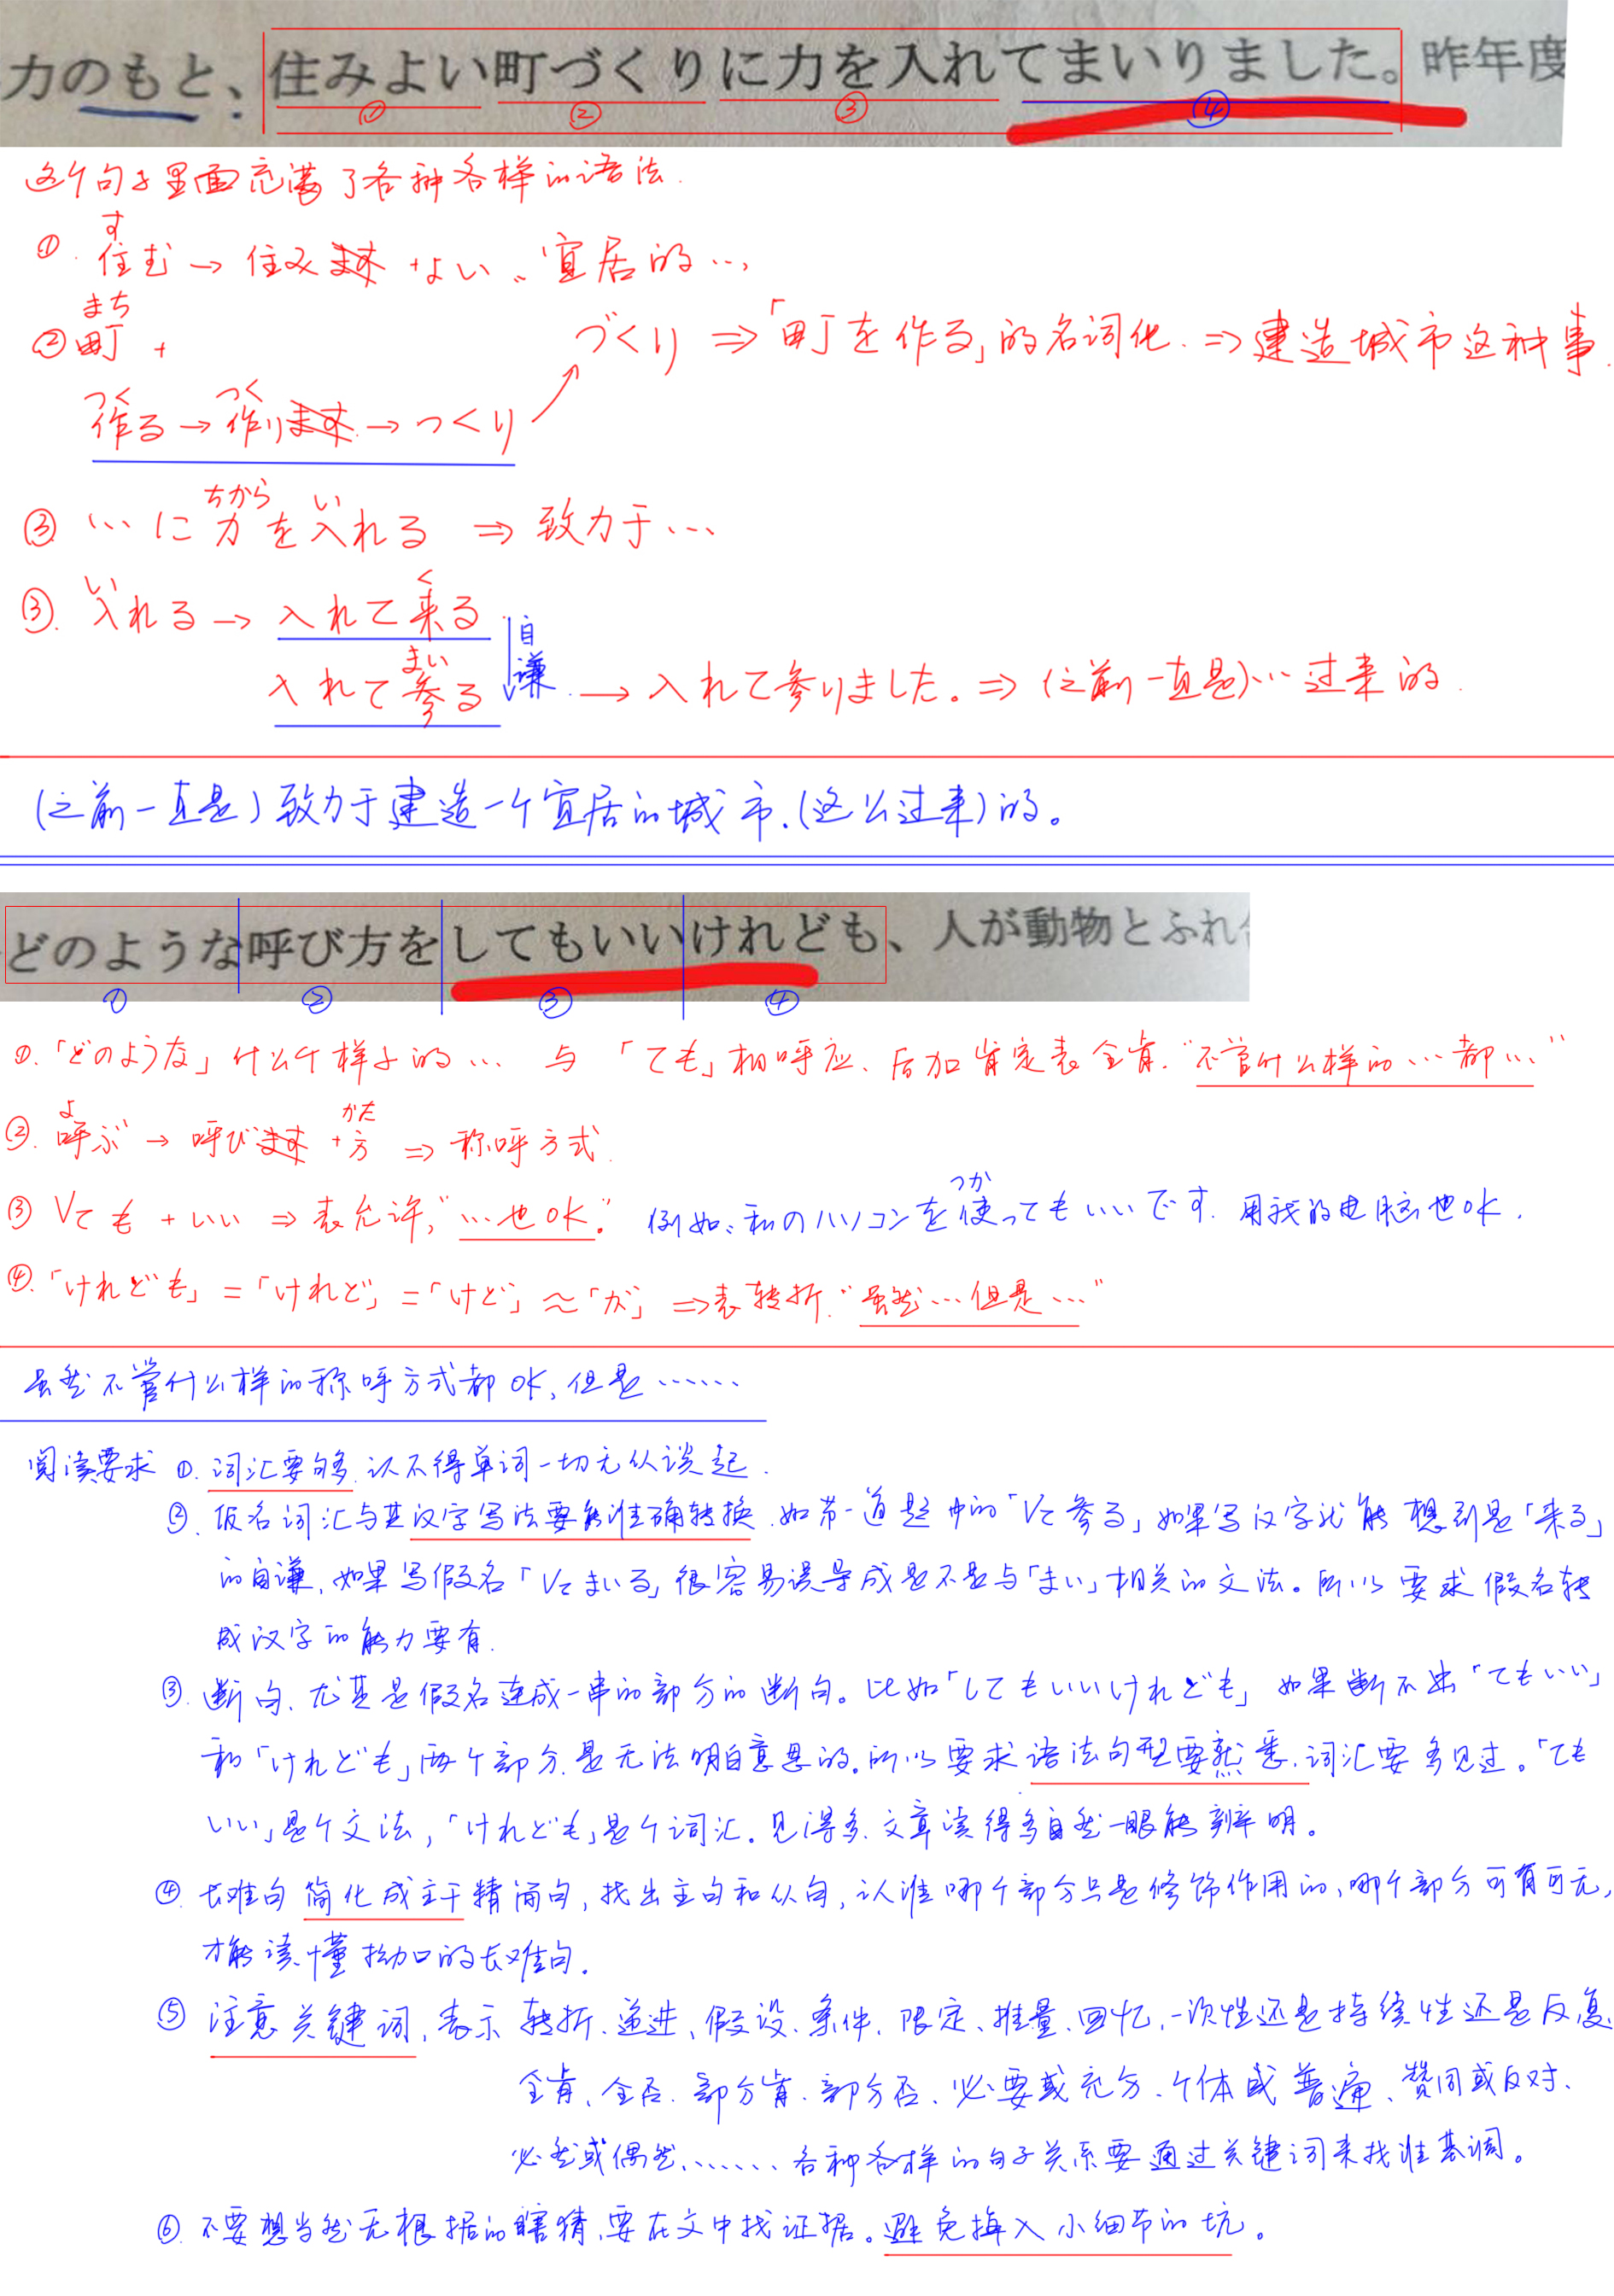 力のもと、住みよい町づくりに力を入れてまいりました。昨年度
① ② ③ ④
这个句子里面充满了各种各样的语法.
す
①. 住む→住みます +よい、宜居的…,
まち
②町 + づくり ⇒「町を作る」的名词化. ⇒ 建造城市这种事.
つく つく
作る→作ります→つくり
ちから い
③ …に力を入れる ⇒ 致力于…
い く
③. 入れる → 入れて来る 自谦
まい
入れて参る → 入れて参りました。⇒ (之前一直是)…过来的.
(之前一直是)致力于建造一个宜居的城市.(这么过来)的。
どのような呼び方をしてもいいけれども、人が動物とふれ
① ② ③ ④
①.「どのような」什么个样子的… 与「ても」相呼应、后加肯定表全肯."不管什么样的…都…"
よ かた
②. 呼ぶ → 呼びます +方 ⇒ 称呼方式.
つか
③ Vても +いい ⇒ 表允许,"…也OK." 例如:私のパソコンを使ってもいいです. 用我的电脑也OK.
④.「けれども」=「けれど」=「けど」≈「が」⇒表转折."虽然…但是…"
虽然不管什么样的称呼方式都OK,但是……
阅读要求 ①. 词汇要够.认不得单词一切无从谈起.
②. 假名词汇与其汉字写法要能准确转换.如第一道题中的「Vて参る」如果写汉字就能想到是「来る」
的自谦,如果写假名「Vてまいる」很容易误导成是不是与「まい」相关的文法。所以要求假名转
成汉字的能力要有.
③. 断句、尤其是假名连成一串的部分的断句。比如「してもいいけれども」如果断不出「てもいい」
和「けれども」两个部分.是无法明白意思的。所以要求语法句型要熟悉.词汇要多见过。「ても
いい」是个文法,「けれども」是个词汇.见得多.文章读得多自然一眼能辨明。
④ 长难句简化成主干精简句,找出主句和从句,认准哪个部分只是修饰作用的,哪个部分可有可无,
才能读懂拗口的长难句.
⑤ 注意关键词,表示转折、递进、假设、条件、限定、推量、回忆、一次性还是持续性还是反复、
全肯、全否、部分肯、部分否、必要或充分、个体或普遍、赞同或反对、
必然或偶然、…… 各种各样的句子关系要通过关键词来找准基调。
⑥ 不要想当然无根据的瞎猜、要在文中找证据。避免掉入小细节的坑。